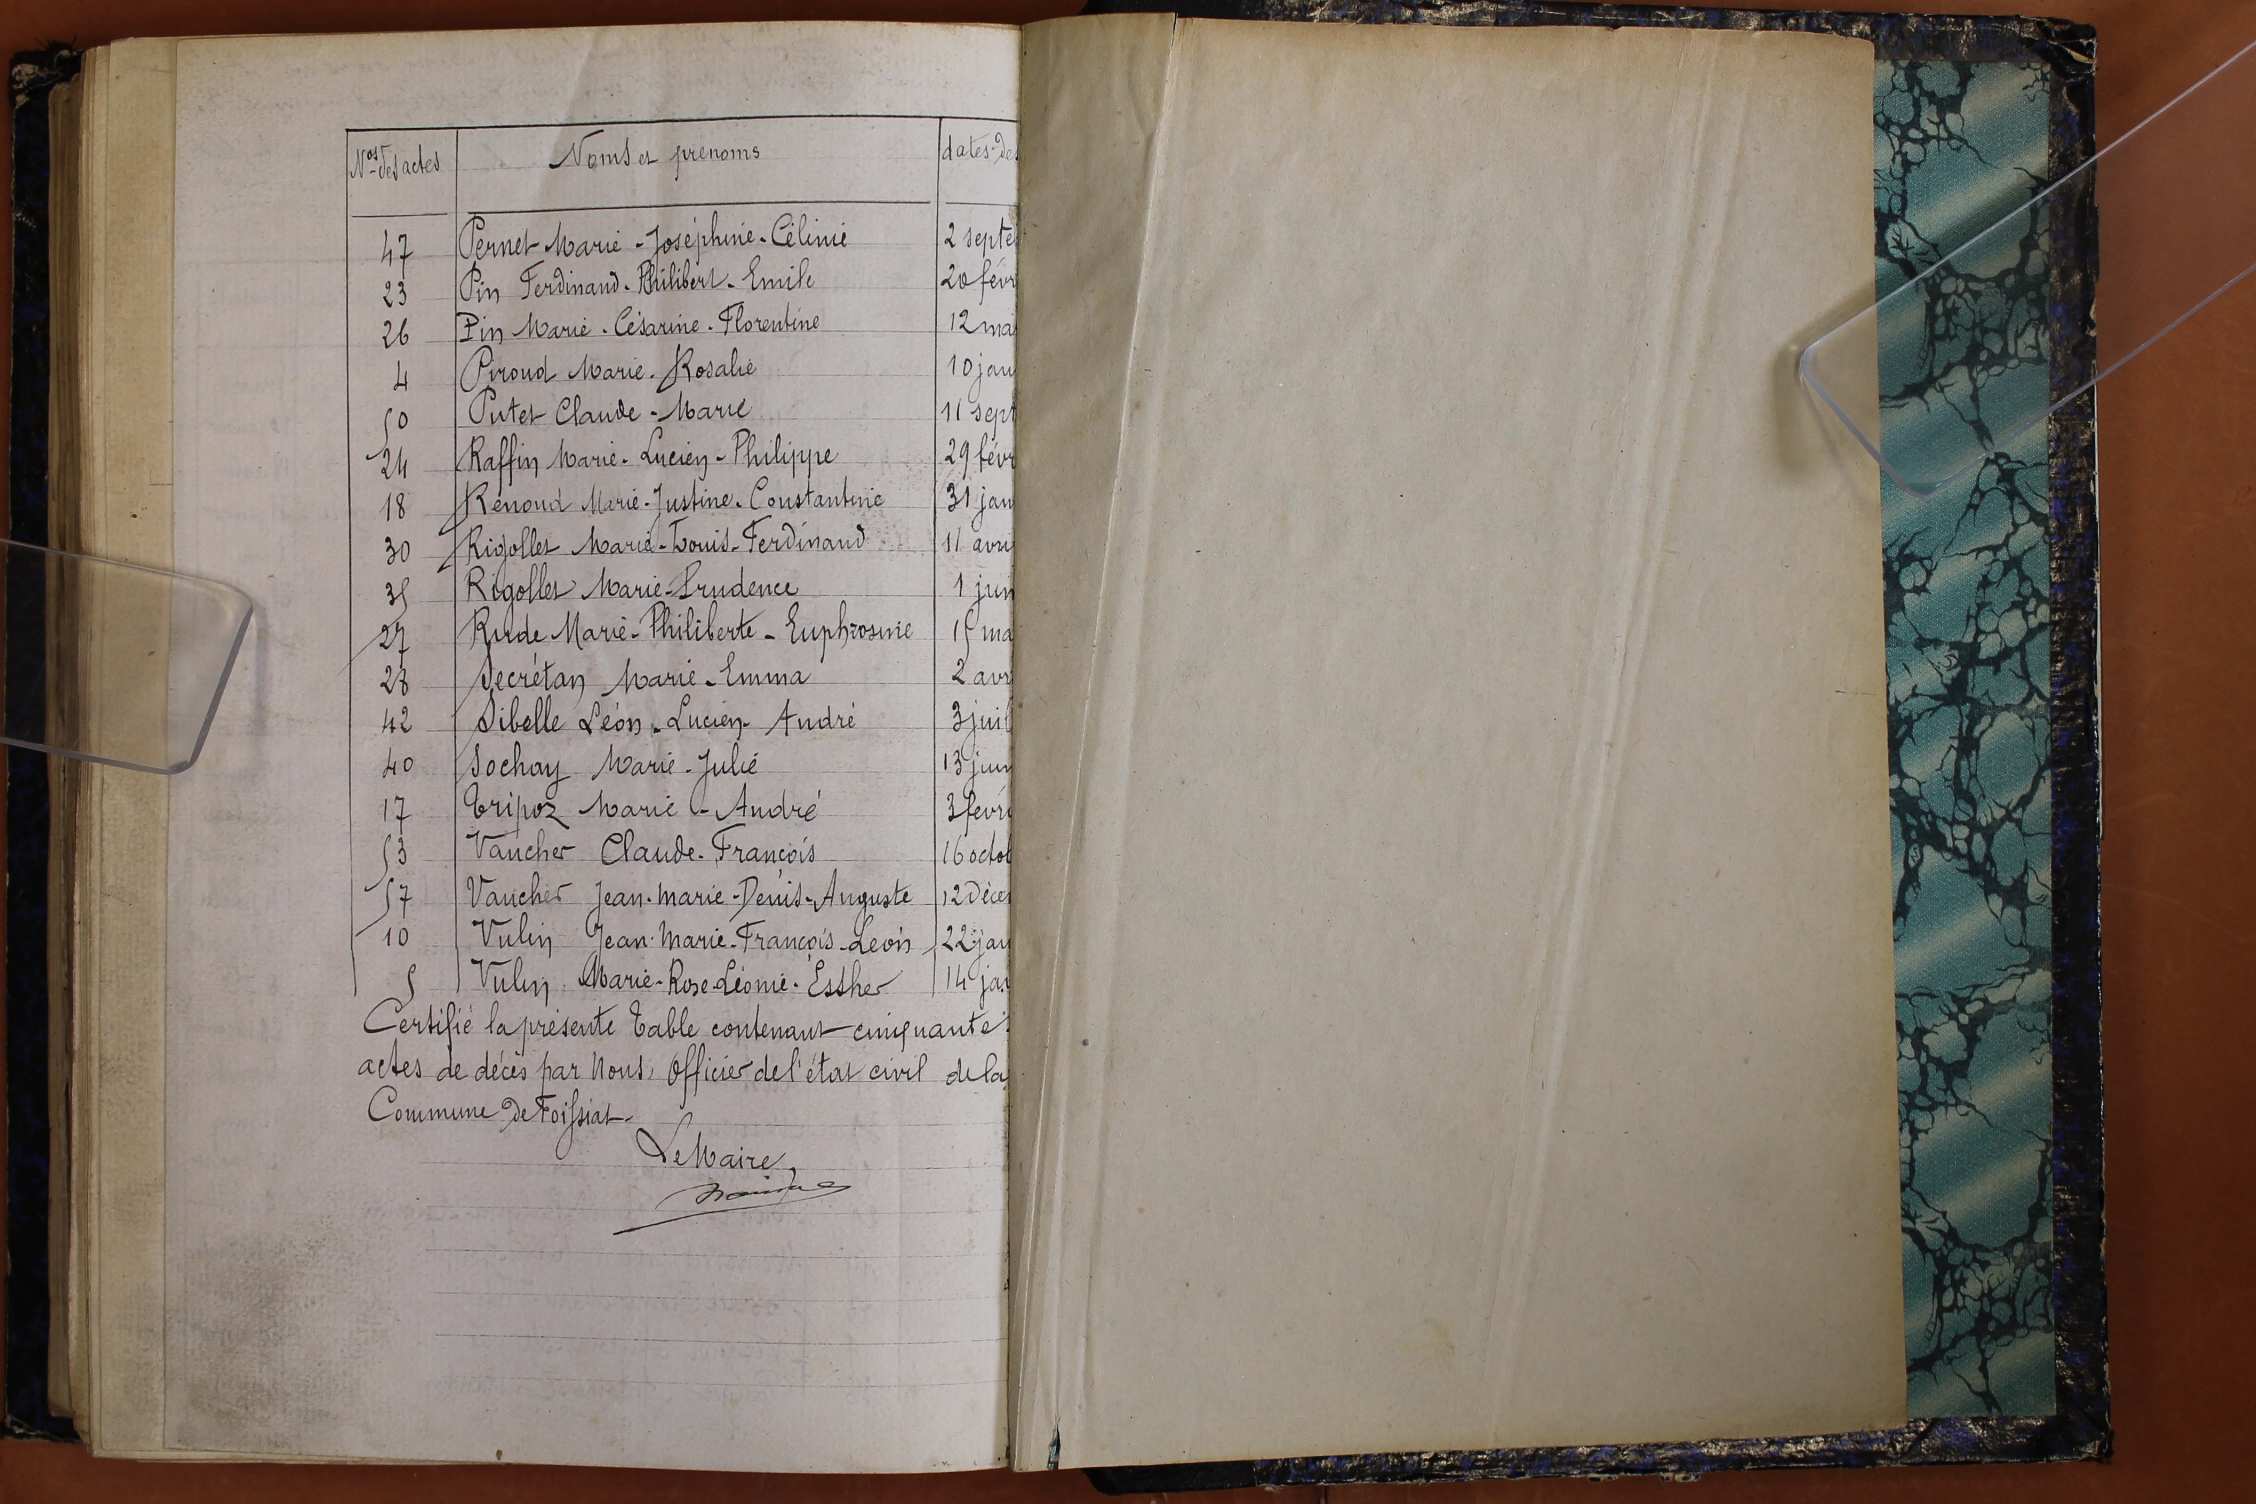 Nos des actes Noms et prénoms dates des
47 Pernet Marie-Joséphine-Célinie 2 septe
23 Pin Ferdinand-Philibert-Emile 20 févr
26 Pin Marie-Césarine-Florentine 12 ma
4 Piroud Marie-Rosalie 10 jan
50 Putet Claude-Marie 11 sept
24 Raffin Marie-Lucien-Philippe 29 févr
18 Renoud Marie-Justine-Constantine 31 jan
30 Rigollet Marie-Louis-Ferdinand 11 avri
35 Rigollet Marie-Prudence 1 juin
27 Rude Marie-Philiberte-Euphrosine 15 ma
28 Secrétan Marie-Emma 2 avr
42 Sibelle Léon-Lucien-André 3 juil
40 Sochay Marie-Julie 13 juin
17 Tripoz Marie-André 3 fevri
53 Vaucher Claude-François 16 octob
57 Vaucher Jean-Marie-Denis-Auguste 12 Décem
10 Vulin Jean-Marie-François-Léon 22 jan
5 Vulin Marie-Rose-Léonie-Esther 14 jan
Certifié la présente table contenant cinquante
actes de décès par Nous, Officier de l'état civil de la
Commune de Foissiat.
Le Maire,